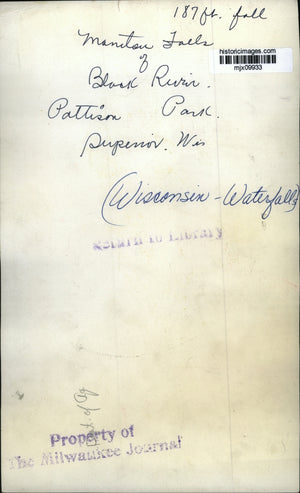 187 ft. fall
historicimages.com
mjx09933
Manitou Falls
of
Black River.
Pattison Park.
Superior, Wis
(Wisconsin - Waterfalls)
Return to Library
Dept. of Ag
Property of
The Milwaukee Journal